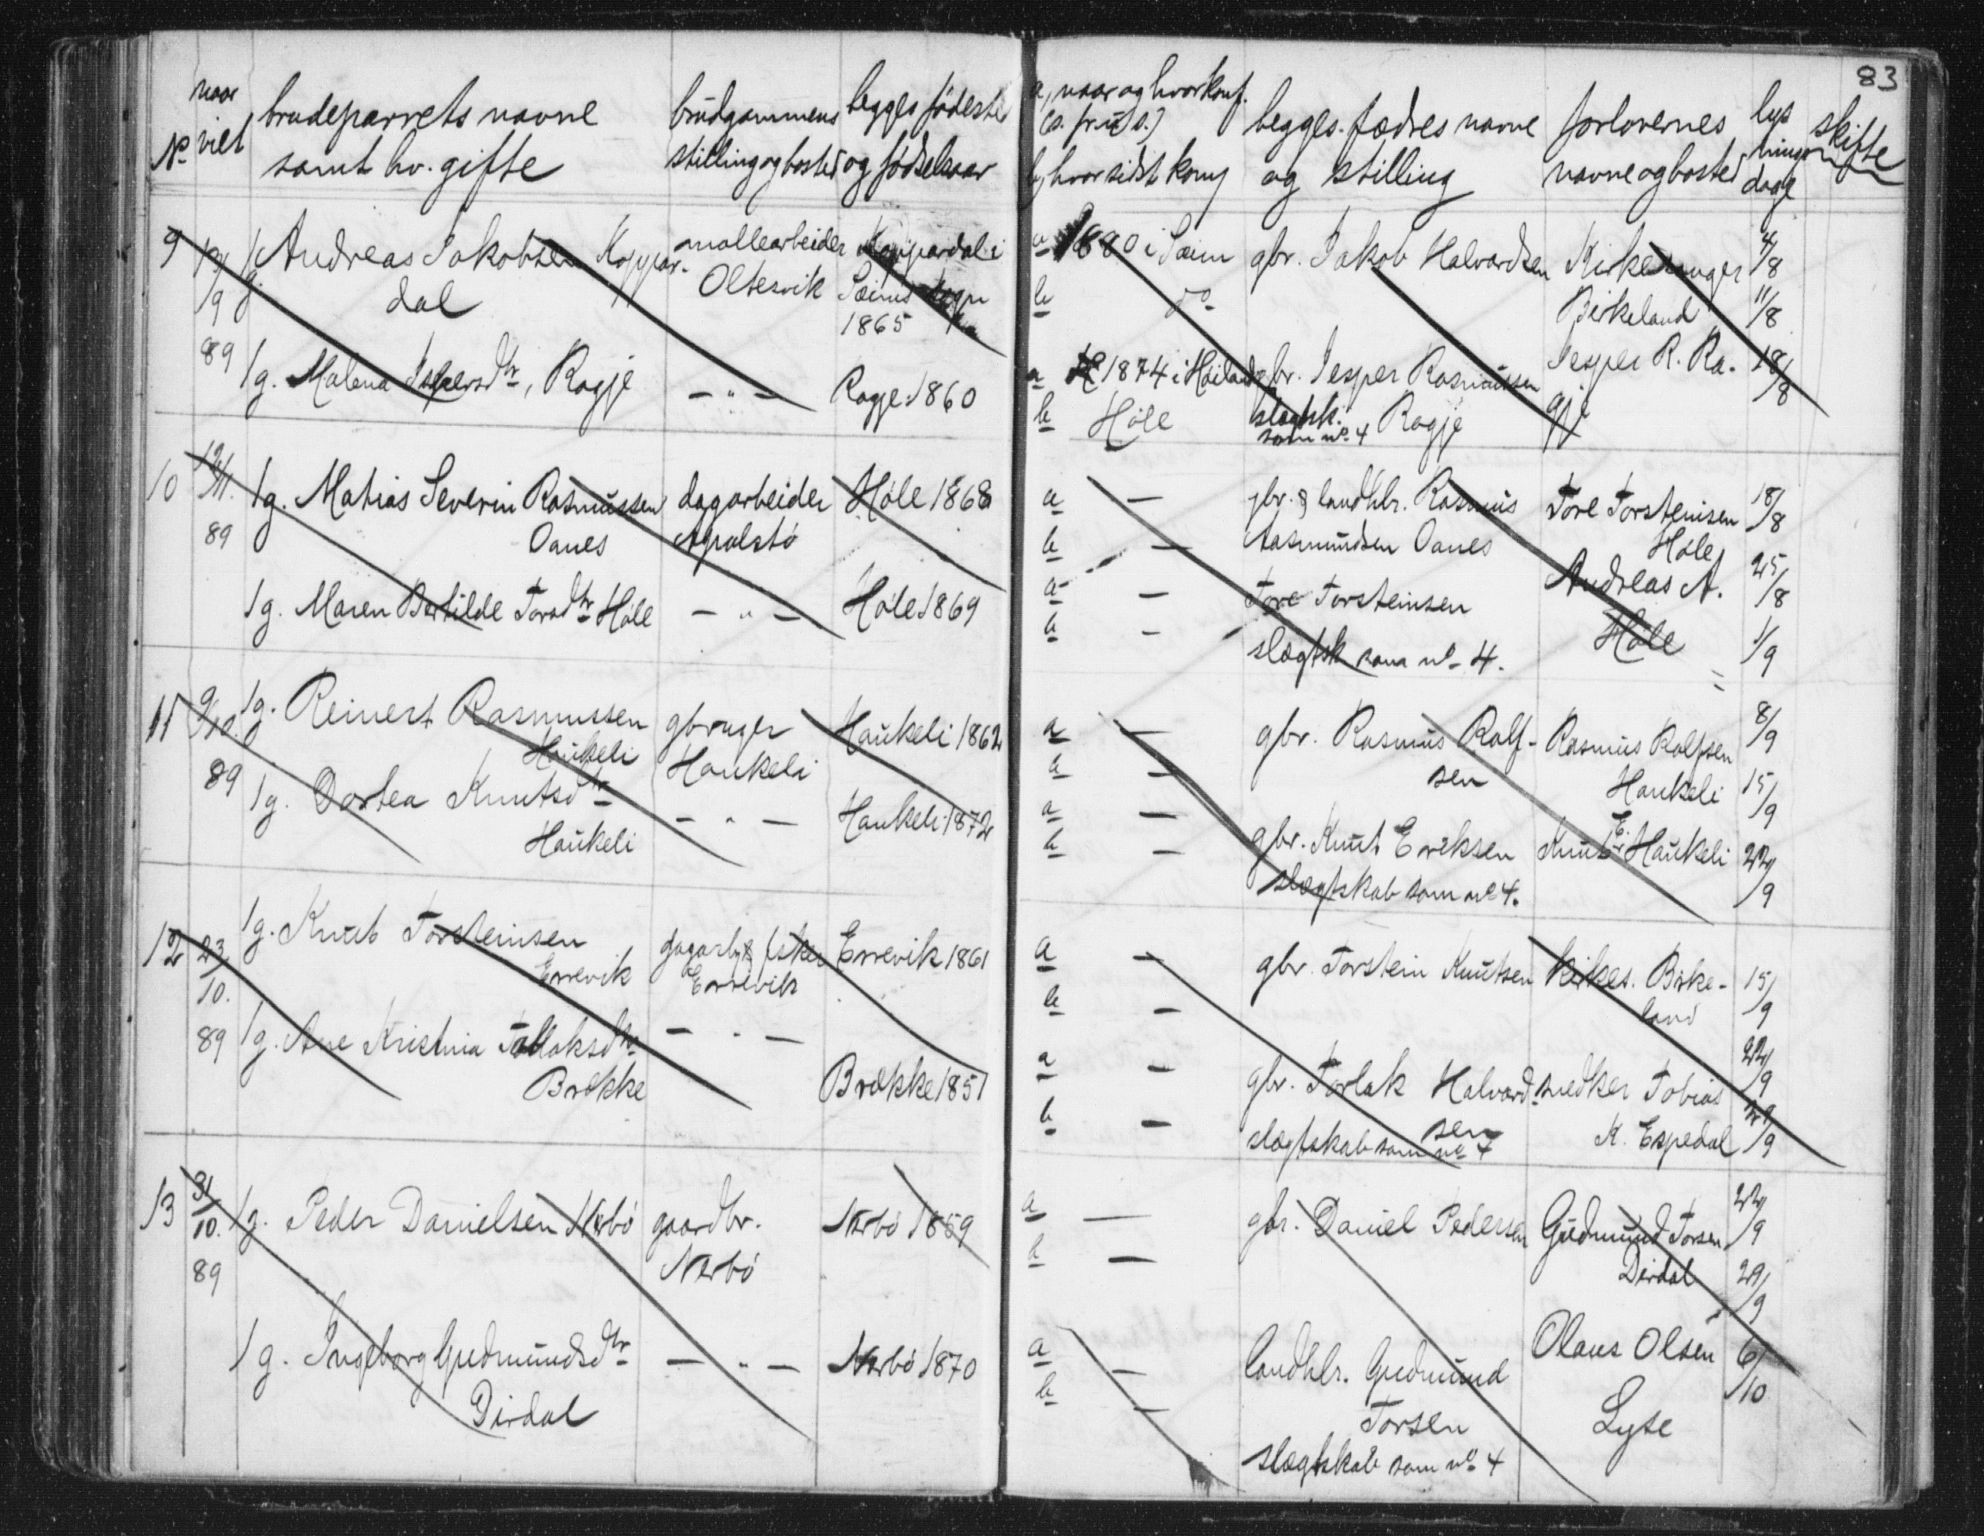 83
No
naar viet
brudeparrets navne
samt hv. gifte
brudgommens
stilling og bosted
begges fødested
og fødselsaar
a, naar og hvor konf.
b, hvor sidst komm
begges fædres navne
og stilling
forlovernes
navne og bosted
lysningsdage
skifte
9
/9
89
Andreas Jakobsen Koppar-
dal
Oltesvik
Koppardal i
1865
1g. Malena Jspersdtr, Ragje
— " —
Ragje 1860
a 1880 i
b do
a 1874 i Høiland
b Høle
gbr. Jakob Halvardsen
gbr. Jesper Rasmussen
slægtsk. Ragje
som no 4
Kirkesanger
Birkeland
Jesper R. Ra-
gje
4/8
11/8
18/8
10
89
1g. Matias Severin Rasmussen
Oanes
dagarbeider
Apalstø
Høle 1868
1g. Maren Bertilde Torsdtr Høle
— " —
Høle 1869
a —
b —
a —
b —
gbr. & landhlr. Rasmus
Aasmundsen Oanes
Tore Torsteinsen
slægtsk som no 4.
Tore Torsteinsen
Høle
Andreas A.
Høle
18/8
25/8
1/9
11
9/10.
89
1g. Reinert Rasmussen
Haukeli
gbruger
Haukeli
Haukeli 1862
1g. Dortea Knutsdtr
Haukeli
— " —
Haukeli 1872
a —
b —
a —
b —
gbr. Rasmus Rolf-
sen
gbr. Knut Eriksen
slægtskab som no 4.
Rasmus Rolfsen
Haukeli
Knut E. Haukeli
8/9
15/9
22/9
12
23/10.
89
1g. Knut Torsteinsen
Errevik
dagarb. & fisker
Errevik
Errevik 1861
1g. Ane Kristina Tollaksdtr
Brække
— " —
Brække 1851
a —
b —
a —
b —
gbr. Torstein Knutsen
gbr. Torlak Halvard-
sen
slægtskab som no 4
Kirkes. Birke-
land
snedker Tobias
K. Espedal
15/9
22/9
29/9
13
31/10.
89
1g. Peder Danielsen Nerbø
gaardbr.
Nerbø
Nerbø 1859
1g. Ingeborg Gudmundsdtr
Dirdal
— " —
Nerbø 1870
a —
b —
a —
b —
gbr. Daniel Pedersen
landhlr. Gudmund
Torsen
slægtskab som no 4
Gudmund Torsen
Dirdal
Olaus Olsen
Lyse
22/9
29/9
6/10